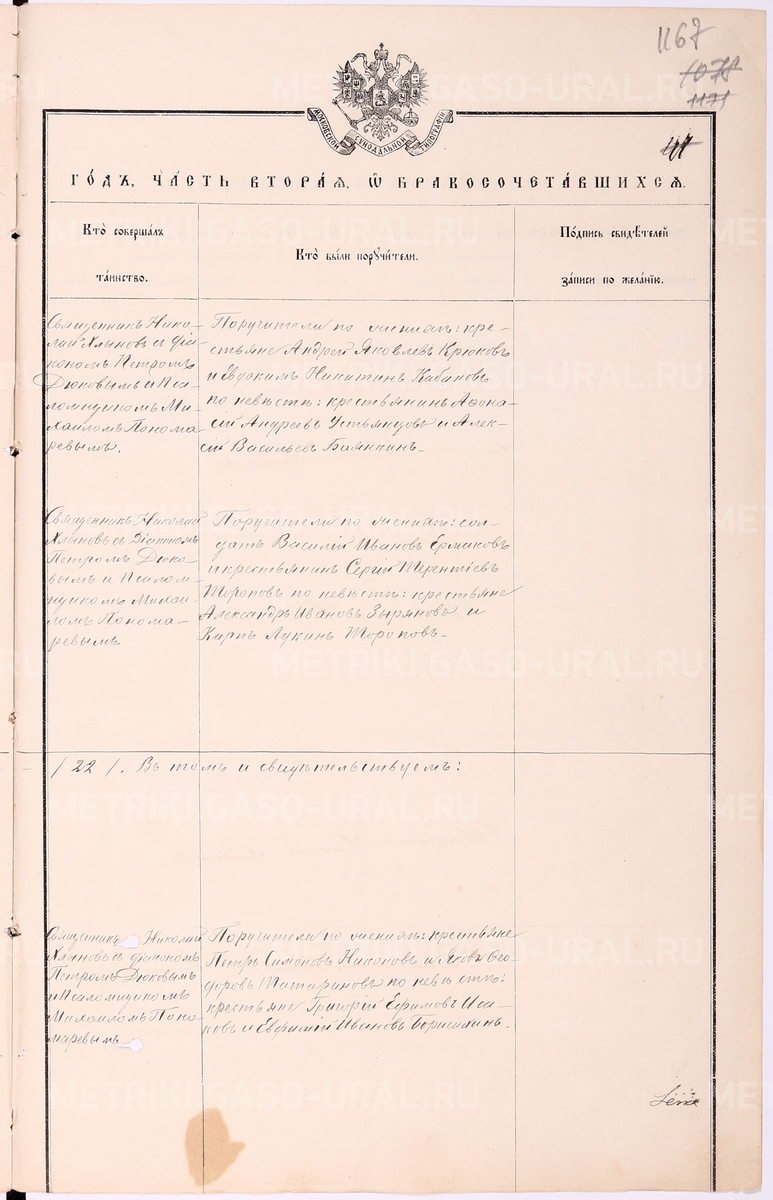 1167
1078
1171
47
МОСКОВСКОЙ СѴНОДАЛЬНОЙ ТИПОГРАФІИ
ГО́ДЪ, ЧА́СТЬ ВТОРА́Ѧ, Ѽ БРАКОСОЧЕТА́ВШИХСѦ.
Кто̀ соверша́лъ
та́инство.
Кто̀ бы́ли порꙋчи́тели.
По́дпись свидѣ́телей
за́писи по жела́нїю.
Священникъ Нико-
лай Хлыновъ съ діа
кономъ Петромъ
Дюковымъ и Пса-
ломщикомъ Ми-
хаиломъ Понома
ревымъ.
Поручители по женихѣ: кре-
стьяне Андрей Яковлевъ Крюковъ
и Евдокимъ Никитинъ Кабановъ
по невѣстѣ: крестьянинъ Афона-
сій Андреевъ Устьянцовъ и Алек-
сій Васильевъ Баянкинъ.
Священникъ Николай
Хлыновъ съ Діакономъ
Петромъ Дюко-
вымъ и Псалом-
щикомъ Михаи-
ломъ Понома-
ревымъ.
Поручители по женихѣ: сол-
датъ Василій Ивановъ Ермаковъ
и крестьянинъ Сергій Терентіевъ
Тороповъ по невѣстѣ: крестьяне
Александръ Ивановъ Зыряновъ и
Карпъ Лукинъ Тороповъ.
/ 22 /. Въ томъ и свидѣтельствуемъ:
Священникъ Николай
Хлыновъ съ діакономъ
Петромъ Дюковымъ
и Псаломщикомъ
Михаиломъ Поно-
маревымъ
Поручители по женихѣ: крестьяне
Петръ Симоновъ Никоновъ и Яковъ Ѳео
доровъ Татариновъ по невѣстѣ:
крестьяне Григорій Ефимовъ Иса-
ковъ и Евфимій Ивановъ
METRIKI.GASO-URAL.RU